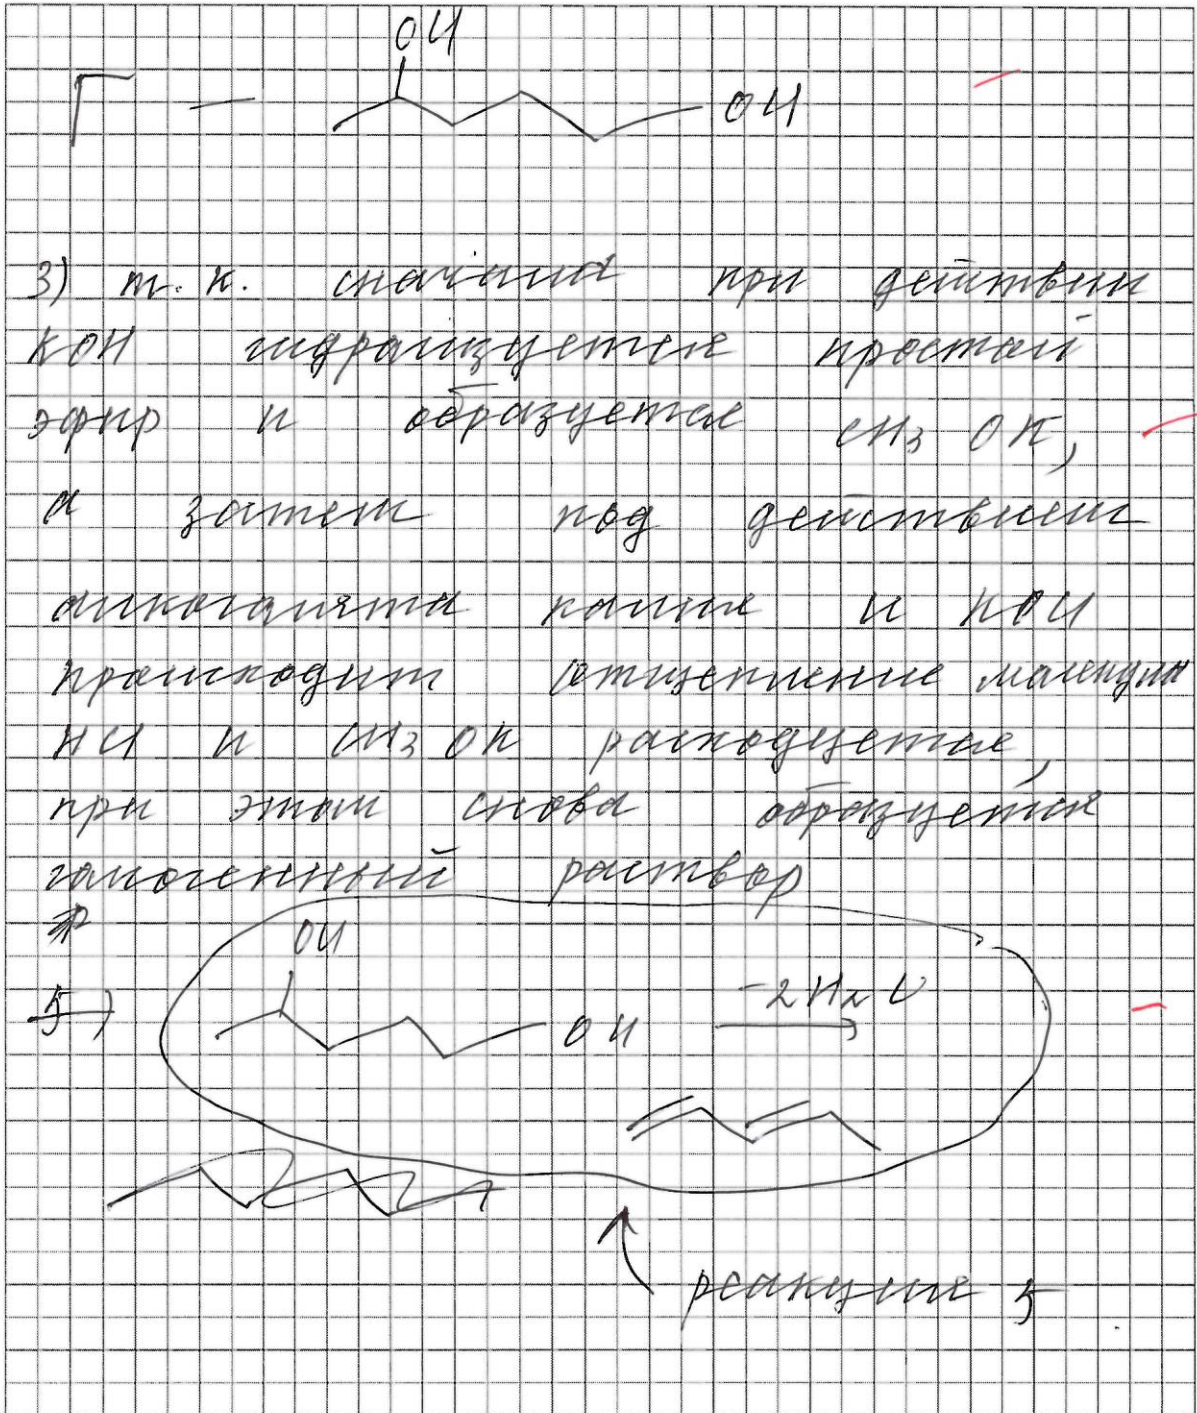 OH
Г — OH
3) т. к. сначала при действии
KOH гидролизуется простой
эфир и образуется CH3 OK,
а затем под действием
алкоголята калия и KOH
происходит отщепление молекулы
HCl и CH3 OK расходуется,
при этом снова образуется
гомогенный раствор
OH
5) OH -2H2O
реакция 5